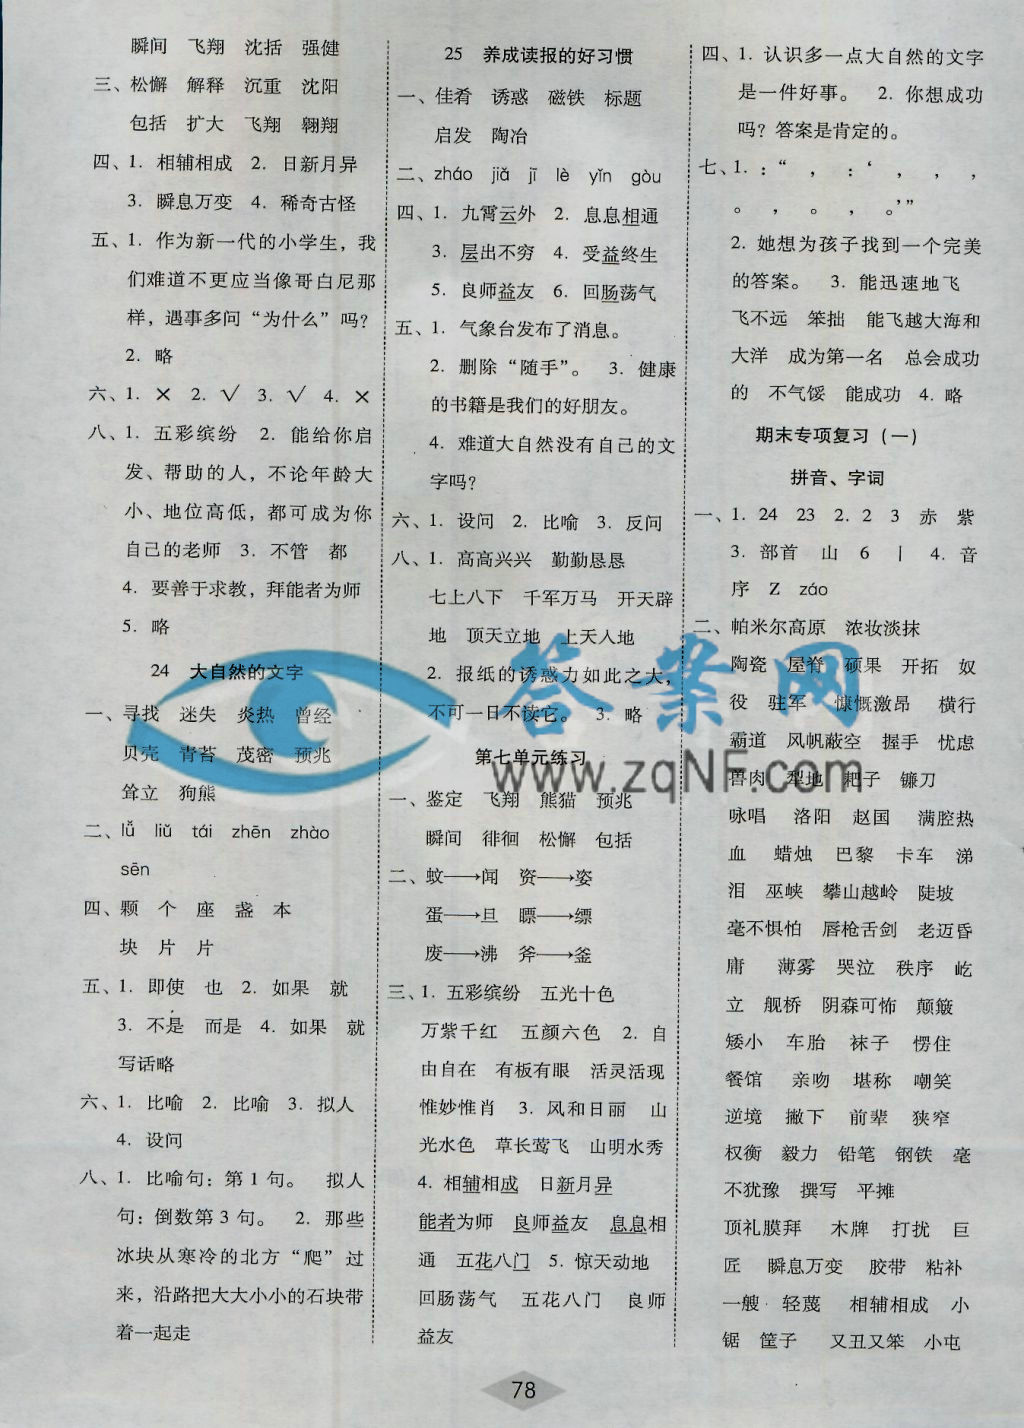 瞬间 飞翔 沈括 强健
三、松懈 解释 沉重 沈阳
包括 扩大 飞翔 翱翔
四、1. 相辅相成 2. 日新月异
3. 瞬息万变 4. 稀奇古怪
五、1. 作为新一代的小学生，我
们难道不更应当像哥白尼那
样，遇事多问“为什么”吗？
2. 略
六、1. × 2. √ 3. √ 4. ×
八、1. 五彩缤纷 2. 能给你启
发、帮助的人，不论年龄大
小、地位高低，都可成为你
自己的老师 3. 不管 都
4. 要善于求教，拜能者为师
5. 略
24 大自然的文字
一、寻找 迷失 炎热 曾经
贝壳 青苔 茂密 预兆
耸立 狗熊
二、lǚ liǔ tái zhēn zhào
sēn
四、颗 个 座 盏 本
块 片 片
五、1. 即使 也 2. 如果 就
3. 不是 而是 4. 如果 就
写话略
六、1. 比喻 2. 比喻 3. 拟人
4. 设问
八、1. 比喻句：第 1 句。 拟人
句：倒数第 3 句。 2. 那些
冰块从寒冷的北方“爬”过
来，沿路把大大小小的石块带
着一起走
25 养成读报的好习惯
一、佳肴 诱惑 磁铁 标题
启发 陶冶
二、zháo jiǎ jī lè yǐn gòu
四、1. 九霄云外 2. 息息相通
3. 层出不穷 4. 受益终生
5. 良师益友 6. 回肠荡气
五、1. 气象台发布了消息。
2. 删除“随手”。 3. 健康
的书籍是我们的好朋友。
4. 难道大自然没有自己的文
字吗？
六、1. 设问 2. 比喻 3. 反问
八、1. 高高兴兴 勤勤恳恳
七上八下 千军万马 开天辟
地 顶天立地 上天入地
2. 报纸的诱惑力如此之大，
不可一日不读它。 3. 略
第七单元练习
一、鉴定 飞翔 熊猫 预兆
瞬间 徘徊 松懈 包括
二、蚊→闻 资→姿
蛋→旦 瞟→缥
废→沸 斧→釜
三、1. 五彩缤纷 五光十色
万紫千红 五颜六色 2. 自
由自在 有板有眼 活灵活现
惟妙惟肖 3. 风和日丽 山
光水色 草长莺飞 山明水秀
4. 相辅相成 日新月异
能者为师 良师益友 息息相
通 五花八门 5. 惊天动地
回肠荡气 五花八门 良师
益友
四、1. 认识多一点大自然的文字
是一件好事。 2. 你想成功
吗？答案是肯定的。
七、1. ：“ ， ：‘ ， ， ，
。 ， 。 ， 。’”
2. 她想为孩子找到一个完美
的答案。 3. 能迅速地飞
飞不远 笨拙 能飞越大海和
大洋 成为第一名 总会成功
的 不气馁 能成功 4. 略
期末专项复习（一）
拼音、字词
一、1. 24 23 2. 2 3 赤 紫
3. 部首 山 6 丨 4. 音
序 Z záo
二、帕米尔高原 浓妆淡抹
陶瓷 屋脊 硕果 开拓 奴
役 驻军 慷慨激昂 横行
霸道 风帆蔽空 握手 忧虑
兽肉 犁地 耙子 镰刀
咏唱 洛阳 赵国 满腔热
血 蜡烛 巴黎 卡车 涕
泪 巫峡 攀山越岭 陡坡
毫不惧怕 唇枪舌剑 老迈昏
庸 薄雾 哭泣 秩序 屹
立 舰桥 阴森可怖 颠簸
矮小 车胎 袜子 愣住
餐馆 亲吻 堪称 嘲笑
逆境 撇下 前辈 狭窄
权衡 毅力 铅笔 钢铁 毫
不犹豫 撰写 平摊
顶礼膜拜 木牌 打扰 巨
匠 瞬息万变 胶带 粘补
一艘 轻蔑 相辅相成 小
锯 筐子 又丑又笨 小屯
答案网
www.zqNF.com
78